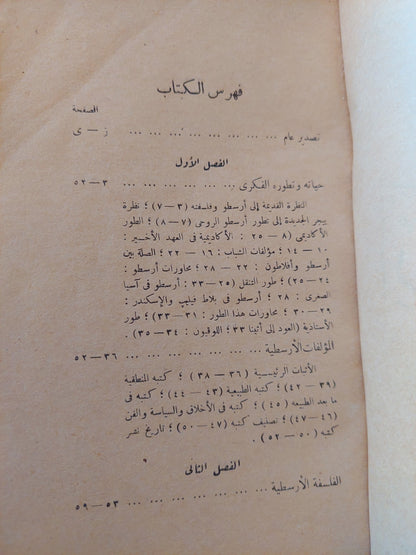 فهرس الكتاب
الصفحة
تصدير عام ... ... ... ... ... ... ... ز — ى
الفصل الأول
حياته وتطوره الفكرى ... ... ... ... ... ... ٣ — ٥٢
النظرة القديمة إلى أرسطو وفلسفته (٣ — ٧) ؛ نظرة
ييجر الجديدة إلى تطور أرسطو الروحى (٧ — ٨) ؛ الطور
الأكاديمى (٨ — ٢٥ : الأكاديمية فى العهد الأخير :
١٠ — ١٤ ؛ مؤلفات الشباب : ١٦ — ٢٢ ؛ الصلة بين
أرسطو وأفلاطون : ٢٢ — ٢٨ ؛ محاورات أرسطو :
٢٤ — ٢٥) ؛ طور التنقل (٢٥ — ٣٣ : أرسطو فى آسيا
الصغرى : ٢٨ ؛ أرسطو فى بلاط فيليپ والإسكندر :
٢٩ — ٣٠ ؛ محاورات هذا الطور : ٣١ — ٣٣) ؛ طور
الأستاذية (العود إلى أتينا ٣٣ ؛ اللوقيون : ٣٤ — ٣٥) .
المؤلفات الأرسطية ... ... ... ... ... ... ... ٣٦ — ٥٢
الأثبات الرئيسية (٣٦ — ٣٨) ؛ كتبه المنطقية
(٣٩ — ٤٢) ؛ كتبه الطبيعية (٤٣ — ٤٤) ؛ كتبه فى
ما بعد الطبيعه (٤٥) ؛ كتبه فى الأخلاق والسياسة والفن
(٤٦ — ٤٧) ؛ تصنيف كتبه (٤٧ — ٥٠) ؛ تاريخ نشر
كتبه (٥٠ — ٥٢) .
الفصل الثانى
الفلسفة الأرسطية ... ... ... ... ... ... ... ٥٣ — ٥٩